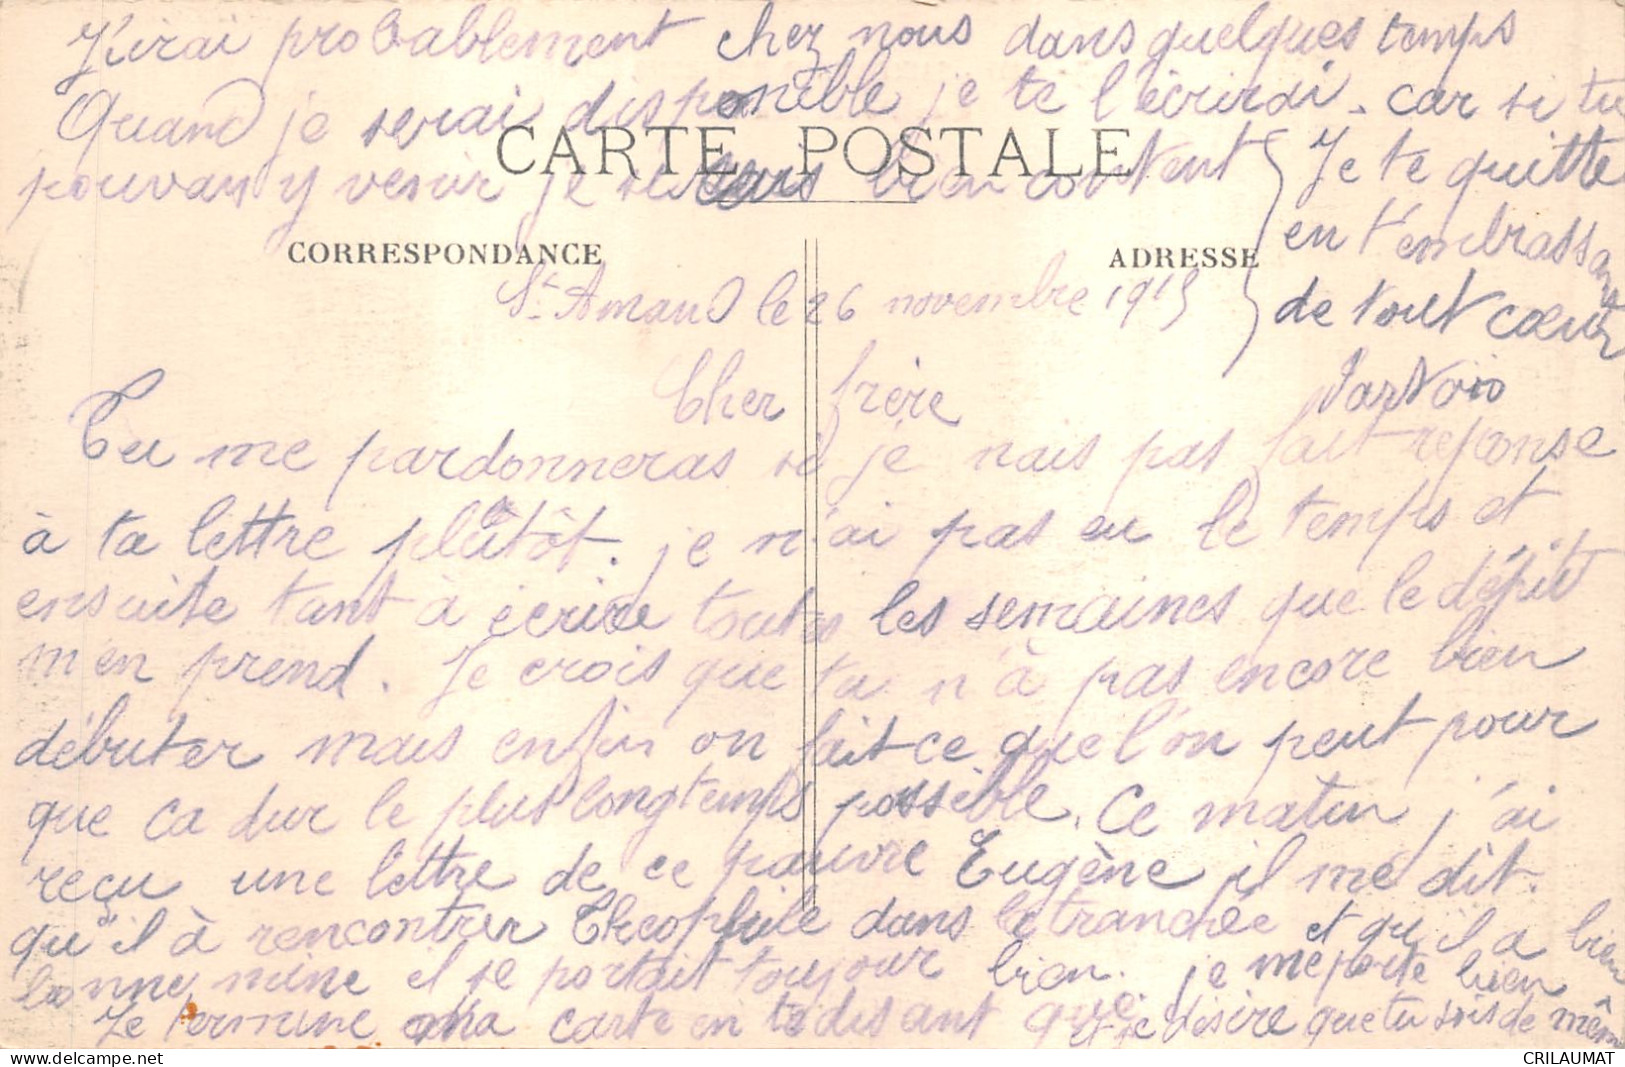 J'irai probablement chez nous dans quelques temps
Quand je serai disponible je te l'écrirai. car si tu
pouvais y venir je serais bien content
CARTE POSTALE
Je te quitte
en t'embrassant
de tout cœur
CORRESPONDANCE
ADRESSE
St Amand le 26 novembre 1915
Cher frère
Tu me pardonneras si je nais pas fait reponse
à ta lettre plûtôt. je n'ai pas eu le temps et
ensuite tant à écrire toutes les semaines que le dépit
m'en prend. Je crois que ta n'à pas encore bien
débuter mais enfin on fait ce que l'on peut pour
que ca dur le plus longtemps possible. Ce matin j'ai
reçu une lettre de ce pauvre Eugène il me dit.
qu'il à rencontrer Théophile dans la tranchée et qu'il a bien
bonne mine il se portait toujour bien. je me porte bien
Je termine ma carte en te disant que je désire que tu sois de même
CRILAUMAT